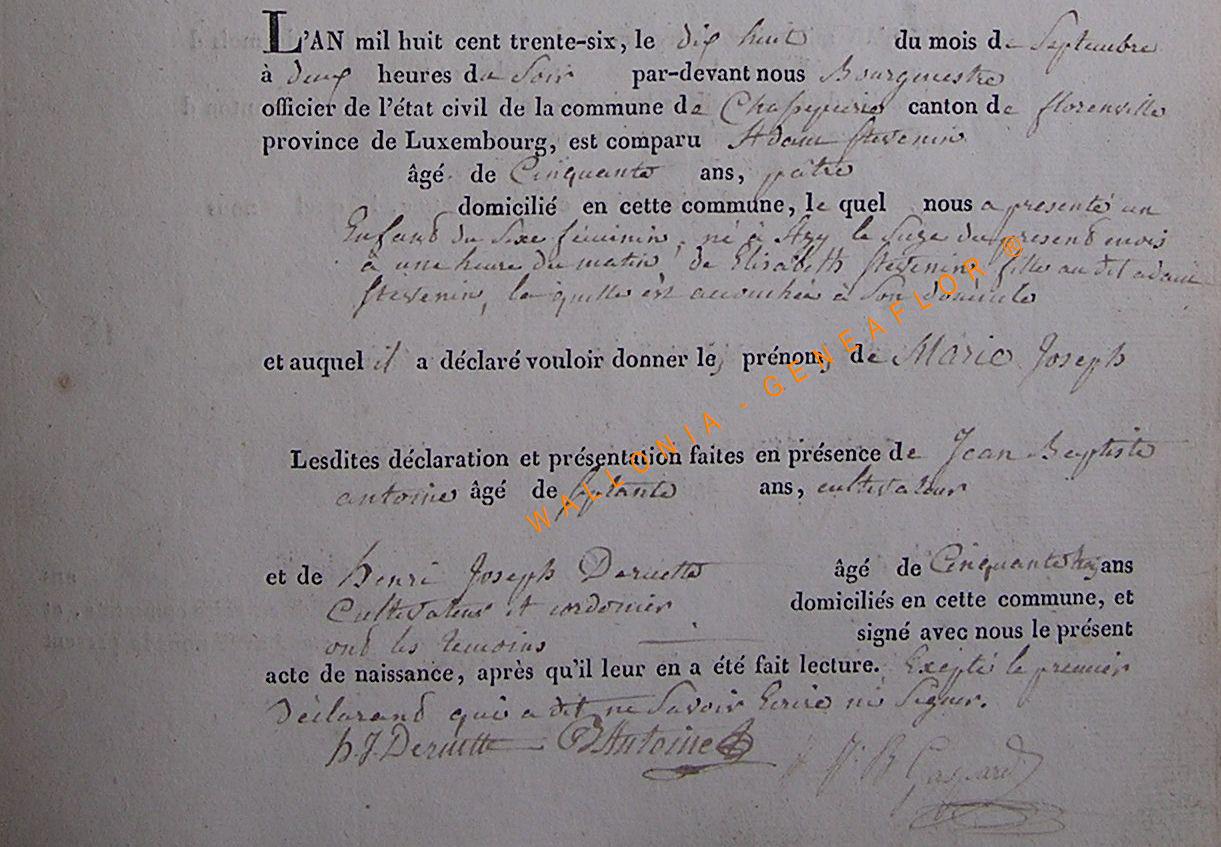 L'AN mil huit cent trente-six, le dix huit du mois de Septembre
à deux heures du Soir par-devant nous Bourgmestre
officier de l'état civil de la commune de Chassepierre canton de florenville
province de Luxembourg, est comparu Adam Stevenin
âgé de Cinquante ans, pâtre
domicilié en cette commune, le quel nous a presenté un
Enfand du Sixe féminin, né à Azy le Suze du present mois
à une heure du matin, de Elisabeth Stevenin, fille au dit adam
Stevenin, la quelle est accouchée à Son domicile
et auquel il a déclaré vouloir donner les prénoms de Marie Joseph
Lesdites déclaration et présentation faites en présence de Jean Baptiste
antoine âgé de septante ans, cultivateur
et de henri Joseph Deruette âgé de Cinquante ans
Cultivateur et cordonier domiciliés en cette commune, et
ond les temoins signé avec nous le présent
acte de naissance, après qu'il leur en a été fait lecture. Exepté le premier
Déclarand qui a dit ne Savoir Ecrire ni Signer.
h.J. Deruette JB Antoine Gaspard
WALLONIA - GENEAFLOR ®